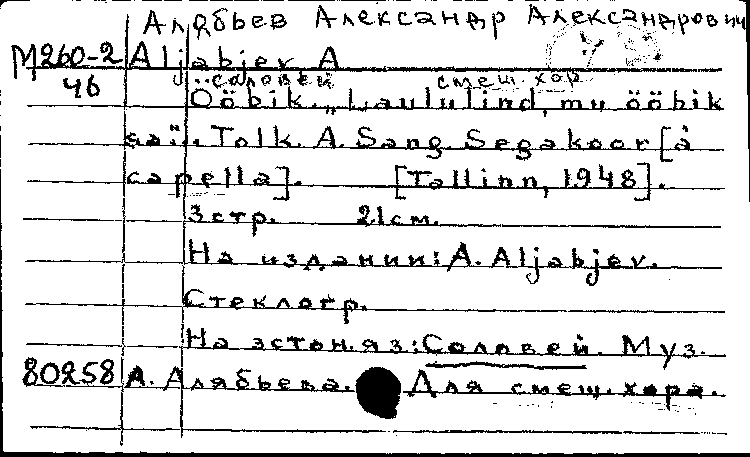 Алябьев Александр Александрович
М260-2 Aljabjev, A
46 ..соловей смеш. хор
Ööbik. „Laululind, mu ööbik
sa"... Tolk. A. Sang. Segakoor [a
capella]. [Tallinn, 1948].
3 стр. 21 см.
На издании: A. Aljabjev.
Стеклогр.
На эстон. яз: Соловей. Муз.
80258 А. Алябьева. Для смеш. хора.